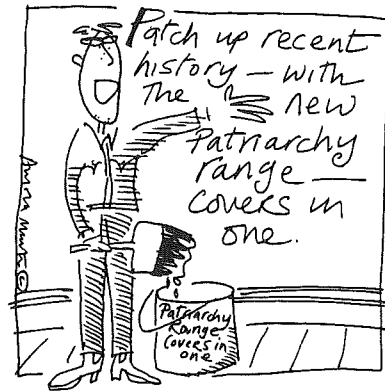 Patch up recent
history — with
The new
Patriarchy
range —
covers in
one.
Patriarchy
Range
Covers in
one
©